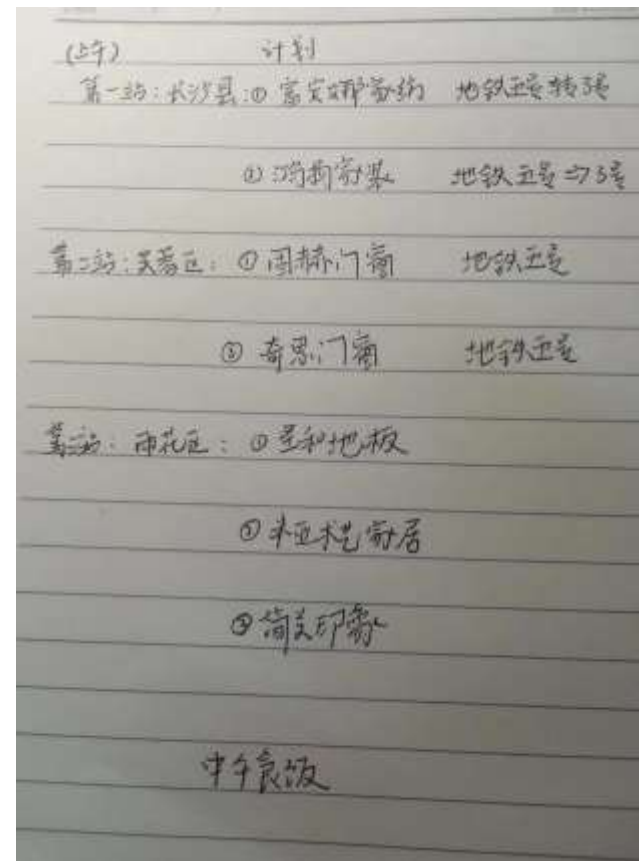 (上午) 计划
第一站:长沙县:① 富安娜家纺 地铁五号转3号
② 鸿扬家装 地铁五号⇒3号
第二站:芙蓉区:① 图赫门窗 地铁五号
② 奇思门窗 地铁五号
第三站:雨花区:① 圣和地板
② 木艺家居
③ 简美印象
中午食饭